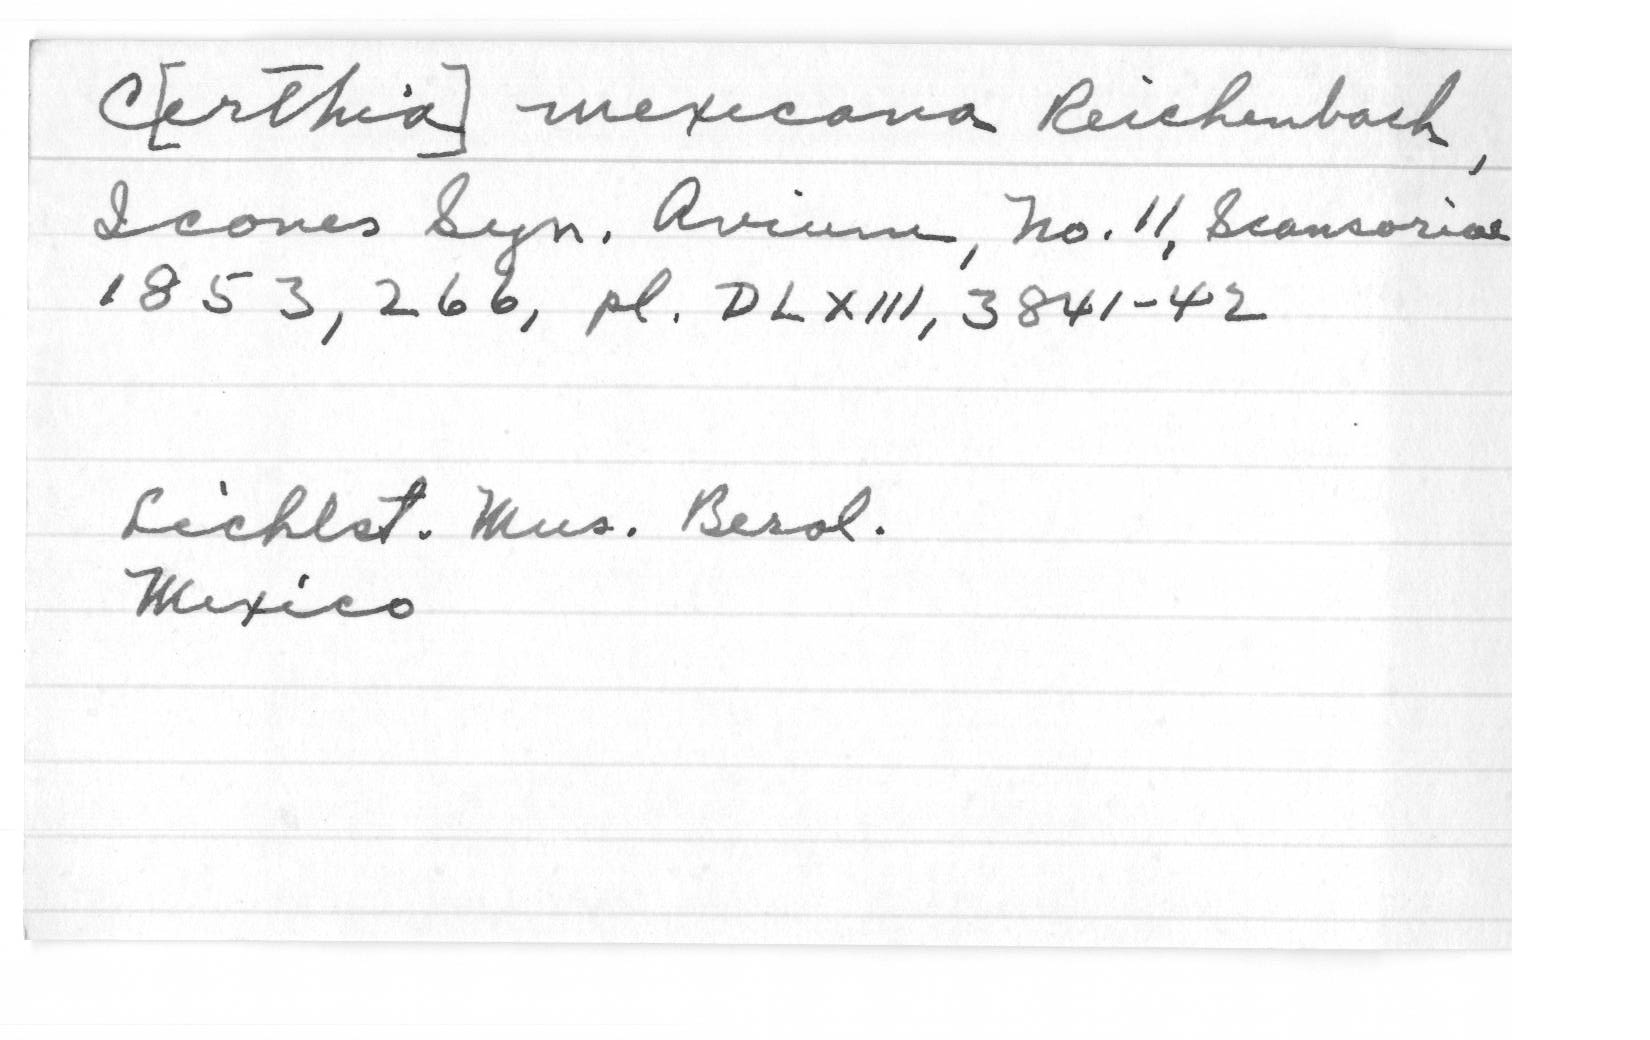 C[erthia] mexicana Reichenbach,
Icones Syn. Avium, No. 11, Scansoriae
1853, 266, pl. DLXIII, 3841-42
Lichtst. Mus. Berol.
Mexico